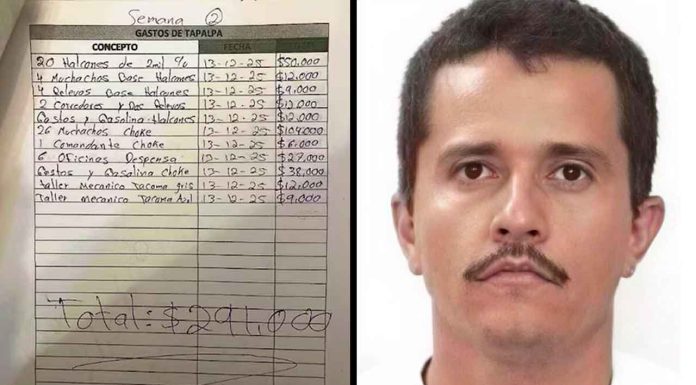 Semana 2
GASTOS DE TAPALPA
CONCEPTO FECHA
20 Halcones de 2mil % 13-12-25 $50,000
4 Muchachos Base Halcones 13-12-25 $12,000
4 Relevos Base Halcones 13-12-25 $9,000
2 Corredores y Dos Relevos 13-12-25
Gostos y Gasolina-Halcones 13-12-25 $12,000
26 Muchachos Choke 13-12-25 $104,000
1 Comandante Choke 13-12-25 $6,000
6 Oficinas Despensa 13-12-25 $27,000
Gostos y Gasolina Choke 13-12-25 $38,000
Taller Mecanico Tacoma gris 13-12-25 $12,000
Taller mecanico Tacoma Azul 13-12-25 $9,000
Total: $291,000